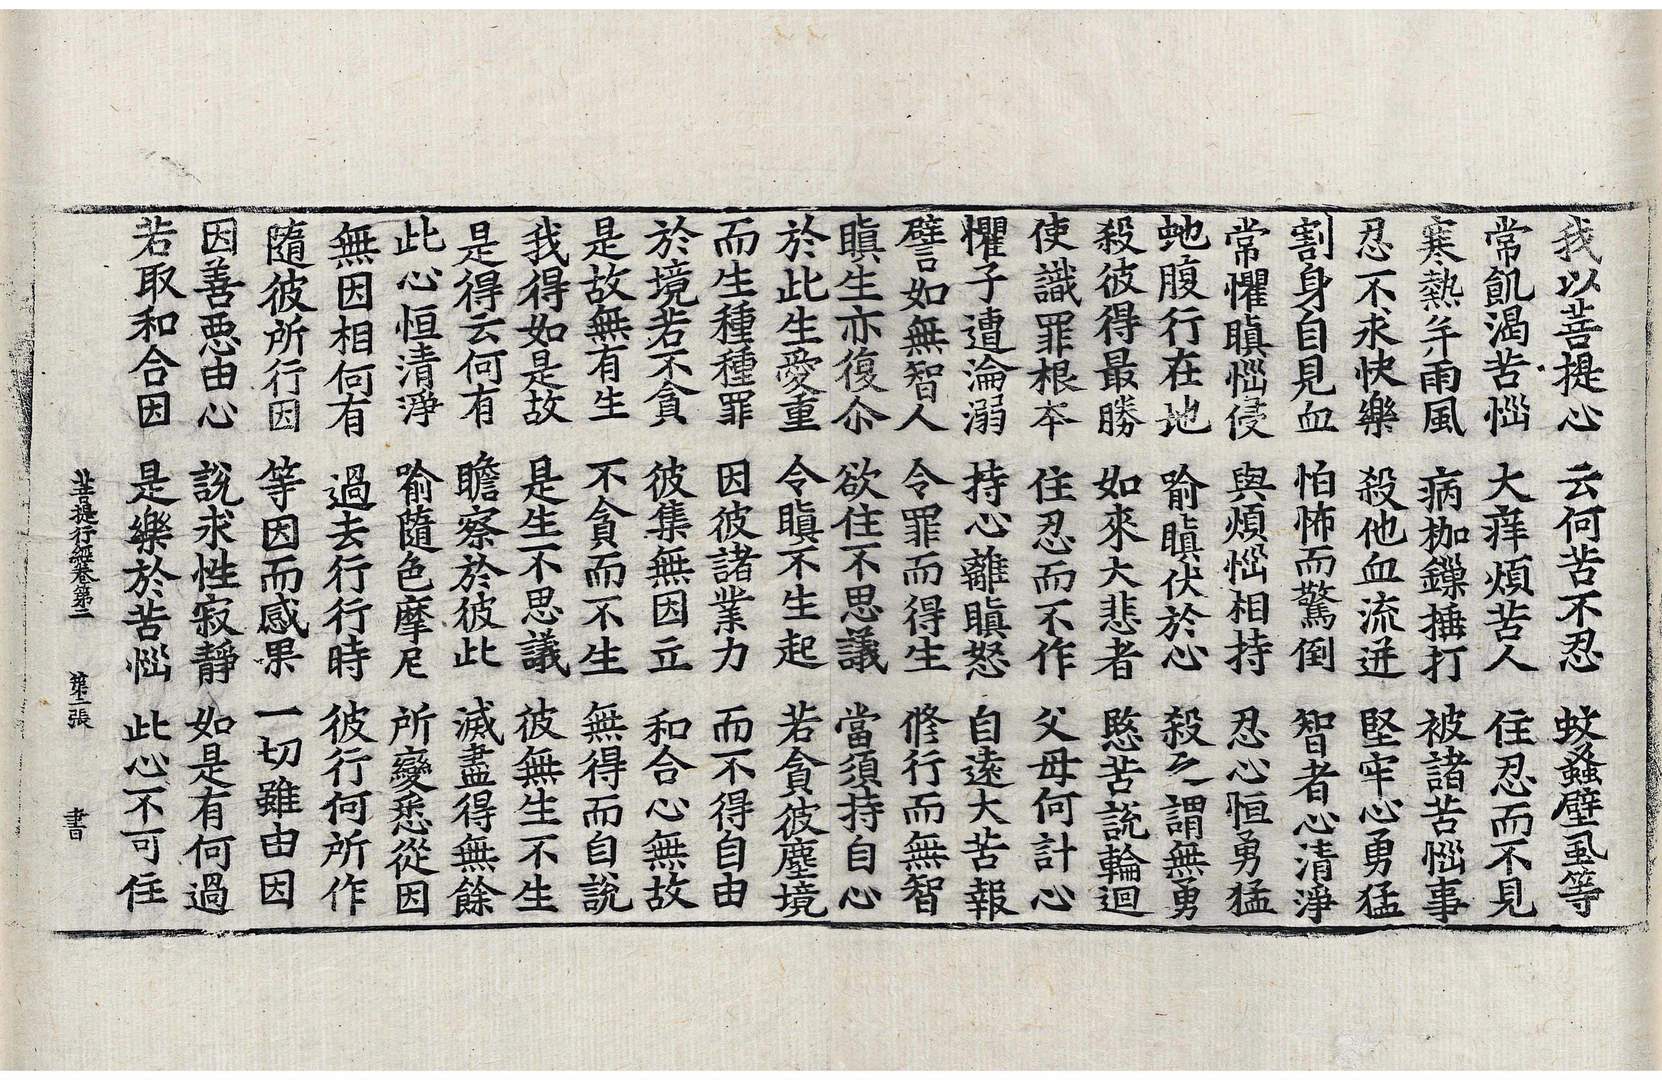 我以菩提心　云何苦不忍　蚊蝨壁虱等
常飢渴苦惱　大痒煩苦人　住忍而不見
寒熱并雨風　病枷鏁捶打　被諸苦惱事
忍不求快樂　殺他血流迸　堅牢心勇猛
割身自見血　怕怖而驚倒　智者心清淨
常懼瞋惱侵　與煩惱相持　忍心恒勇猛
虵腹行在地　喻瞋伏於心　殺之謂無勇
殺彼得最勝　如來大悲者　愍苦說輪迴
使識罪根本　住忍而不作　父母何計心
懼子遭淪溺　持心離瞋怒　自遠大苦報
譬如無智人　令罪而得生　脩行而無智
瞋生亦復尒　欲住不思議　當須持自心
於此生愛重　令瞋不生起　若貪彼塵境
而生種種罪　因彼諸業力　而不得自由
於境若不貪　彼集無因立　和合心無故
是故無有生　不貪而不生　無得而自說
我得如是故　是生不思議　彼無生不生
是得云何有　瞻察於彼此　滅盡得無餘
此心恒清淨　喻隨色摩尼　所變悉從因
無因相何有　過去行行時　彼行何所作
隨彼所行因　等因而感果　一切雖由因
因善惡由心　說求性寂靜　如是有何過
若取和合因　是樂於苦惱　此心不可住
菩提行經卷第二　第二張　書